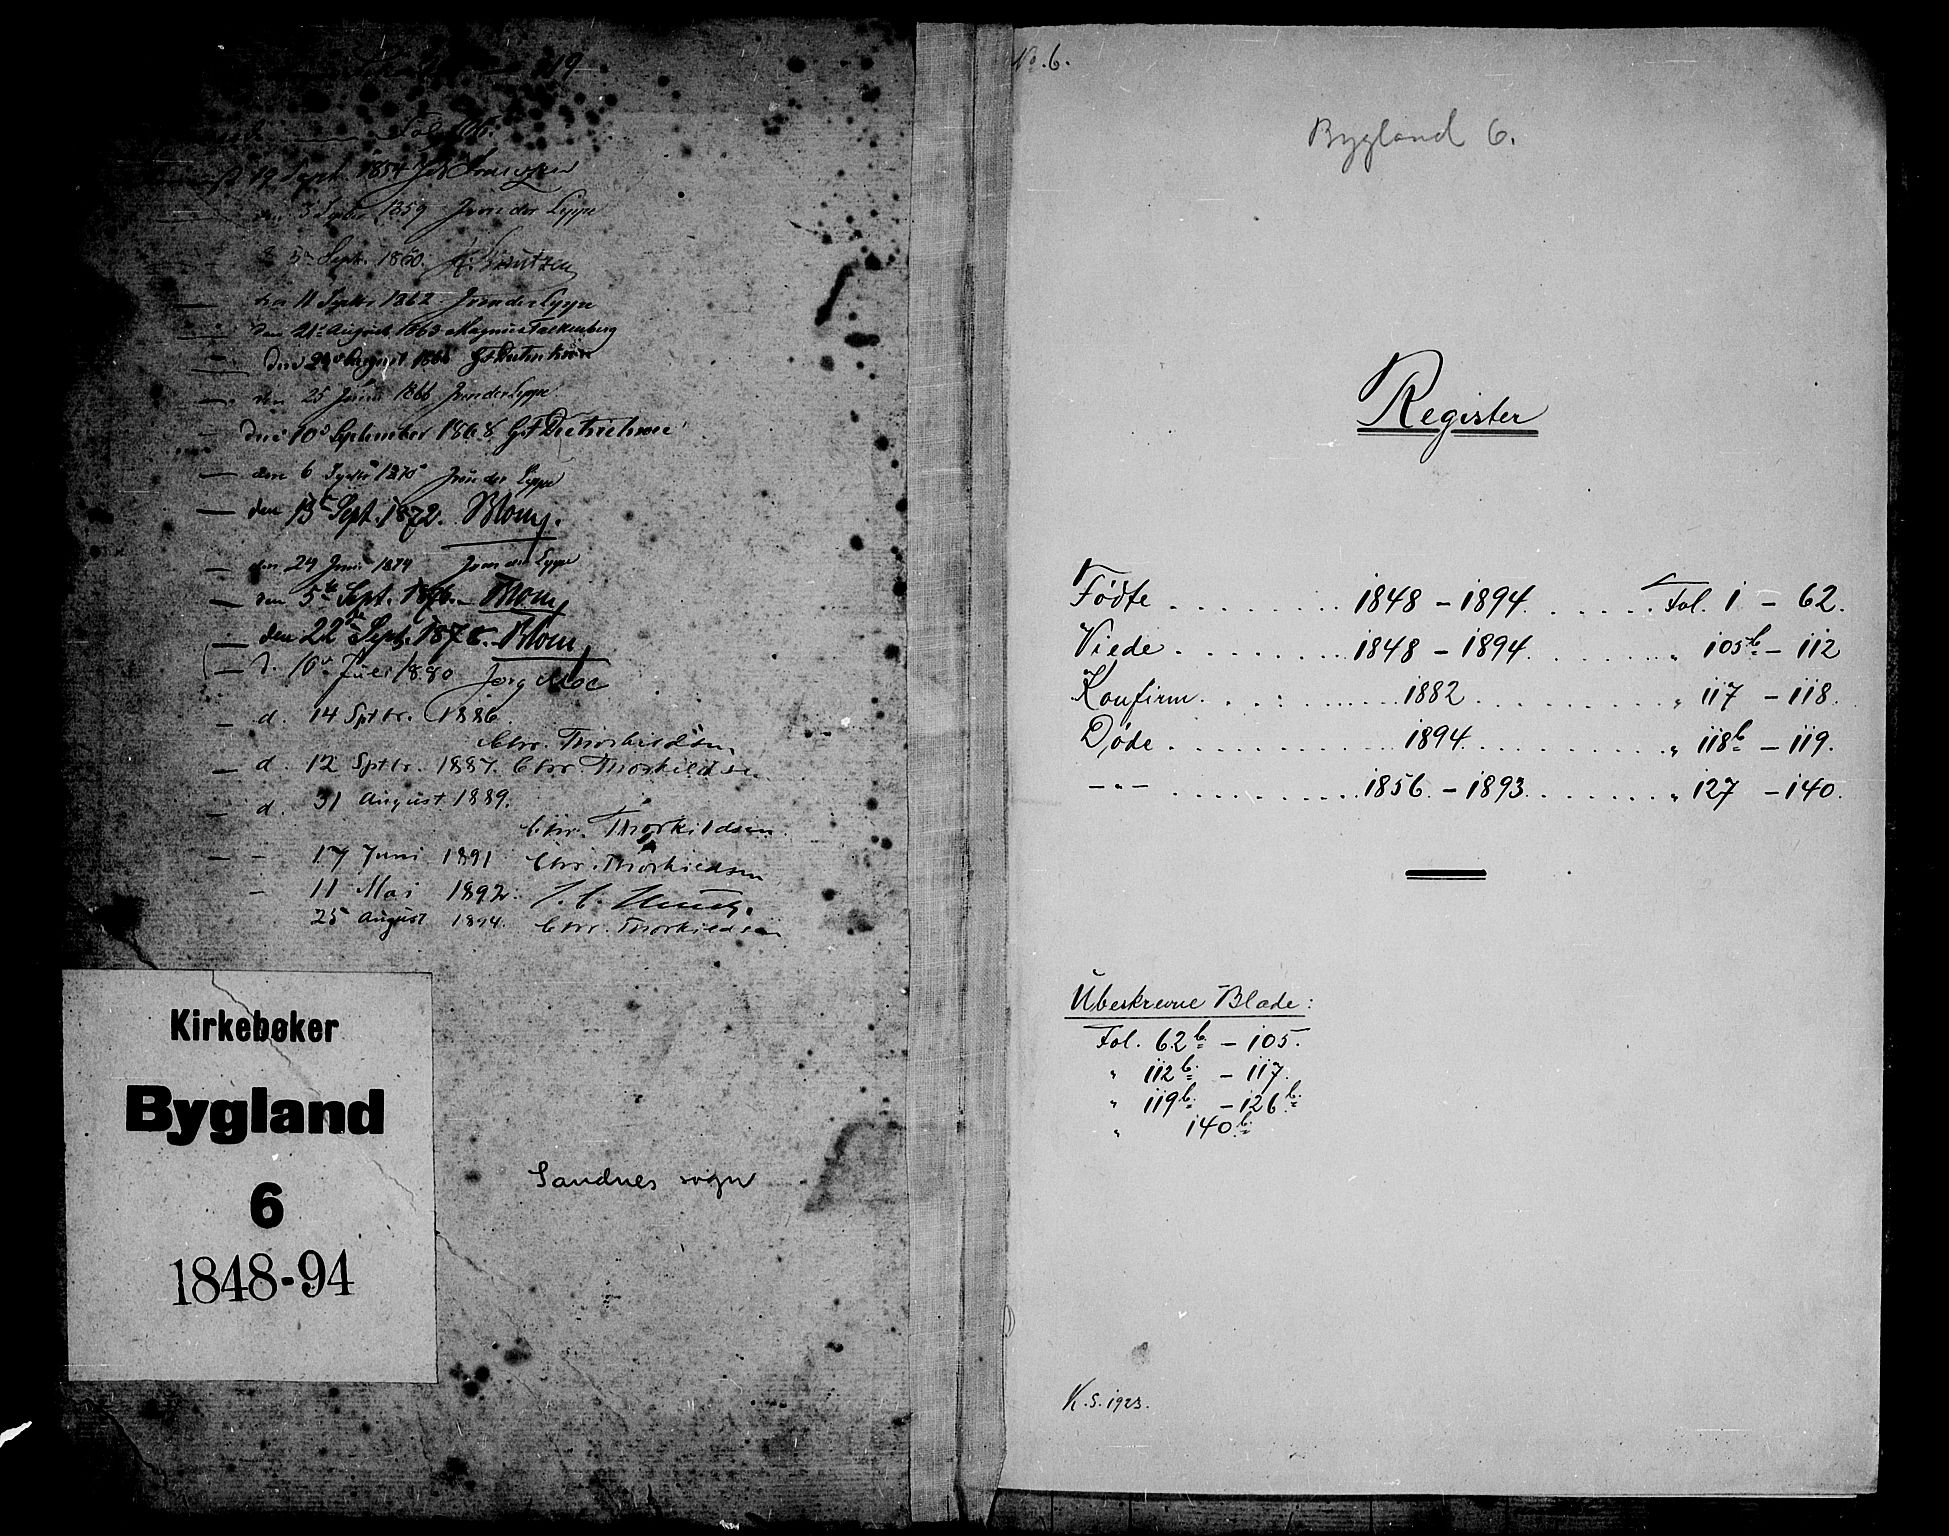 119
Fol.
19 Sept. 1854
den 3 Septbr 1859 J von der Lippe
d 5te Sept. 1860.
den 11 Septbr 1862 J von der Lippe
den 21de August 1863 Magnus Falkenberg
den August G F Dietrichson
den 25 Juni 1866 J von der Lippe
den 10de September 1868 G F Dietrichson
den 6 Septbr 1870 J von der Lippe
den 13 Sept. 1872. Blom.
den 24 Juni 1874 J von der Lippe
den 5te Sept. 1876. Blom
den 22de Sept. 1878. Blom
d. 10de Juli 1880 Jørg Moe
d. 14 Sptbr. 1886.
Chr. Thorkildsen.
d. 12 Sptbr. 1887. Chr. Thorkildsen
d. 31 August 1889.
Chr. Thorkildsen.
17 Juni 1891 Chr. Thorkildsen
11 Mai 1892. J. C. Heuch.
25 August 1894. Chr. Thorkildsen
Kirkebøker
Bygland
6
1848-94
Sandnes sogn
No. 6.
Bygland 6.
Register
Fødte . . . . . . . . 1848 - 1894 . . . . . . Fol. 1 - 62.
Viede . . . . . . . . 1848 - 1894 . . . . . . " 105b - 112
Konfirm. . . . . . . . 1882 . . . . . . . . . " 117 - 118.
Døde . . . . . . . . . 1894 . . . . . . . . . " 118b - 119.
-"- . . . . . . . . . 1856 - 1893 . . . . . . " 127 - 140.
Ubeskrevne Blade:
Fol. 62b - 105.
" 112b - 117.
" 119b - 126b
" 140b
K.S. 1923.